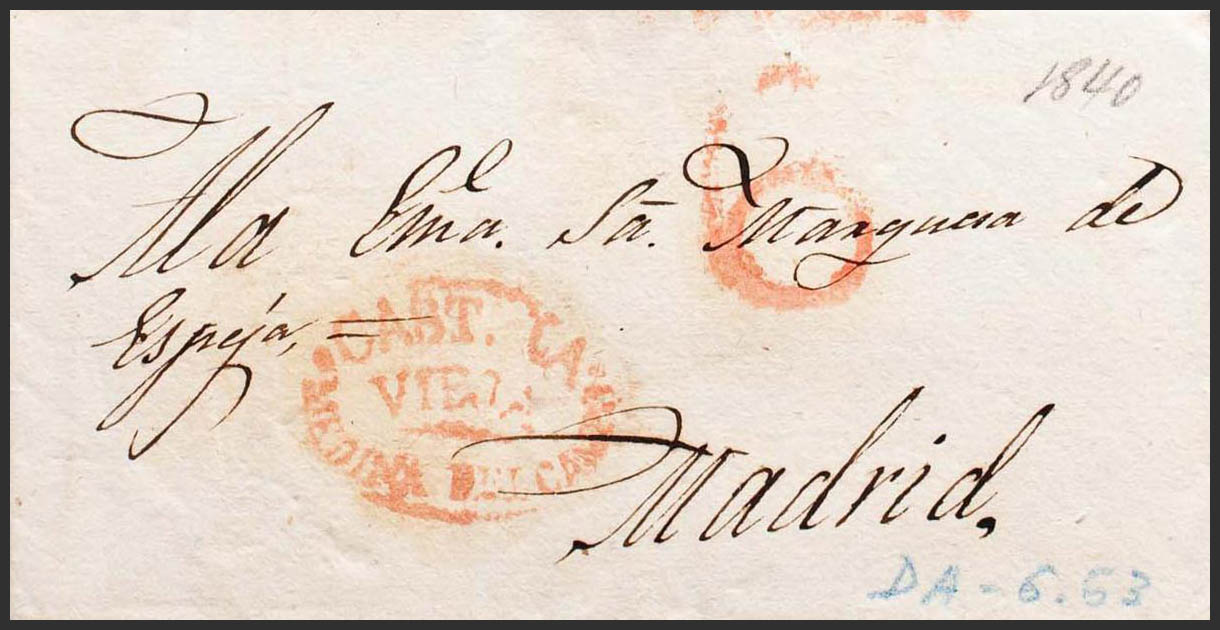 1840
6
A la Ema. Sa. Marquesa de
Espeja,
CAST. LA
VIEJA
MEDINA DEL CAMPO
Madrid,
DA-6.53